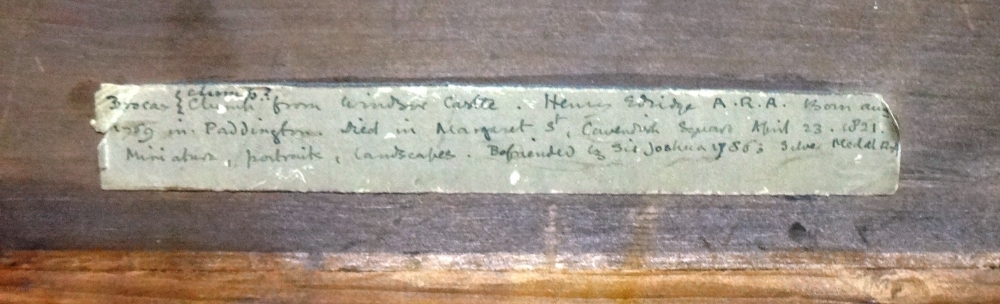 clump?
Brocas { Clump from Windsor Castle. Henry Edridge A.R.A. Born aug
1769 in Paddington. Died in Margaret St, Cavendish Square April 23. 1821.
Miniature, portraits, landscapes. Befriended by Sir Joshua Silver Medal